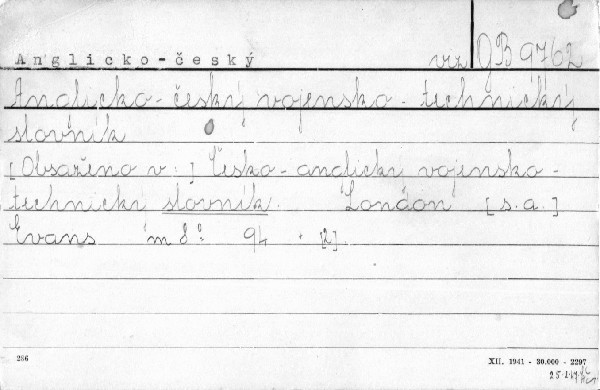 Anglicko-český viz GB 9762
Anglicko-český vojensko-technický
slovník
[Obsaženo v:] Česko-anglický vojensko-
technický slovník. London [s.a.]
Evans m 8° 94 . [2].
286 XII. 1941 - 30.000 - 2297